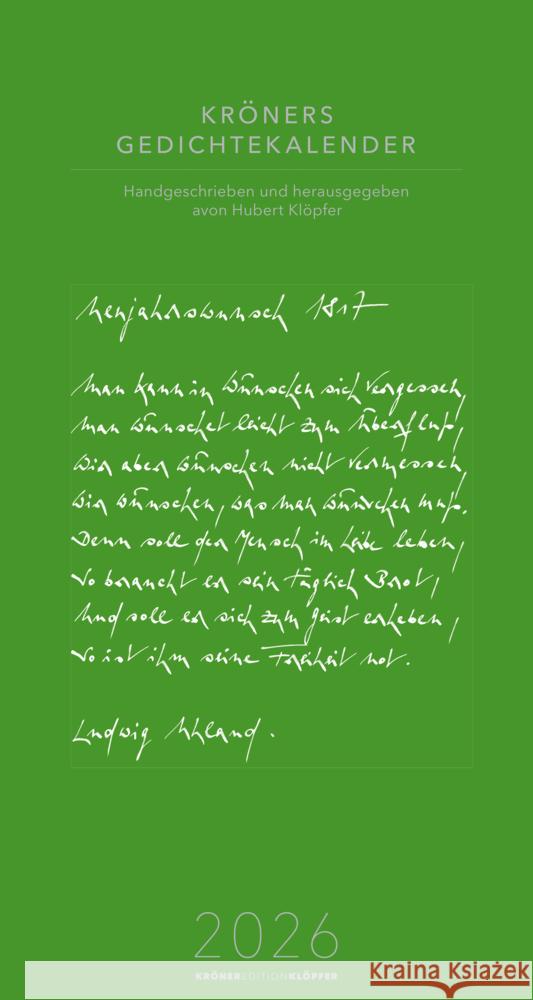 KRÖNERS
GEDICHTEKALENDER
Handgeschrieben und herausgegeben
avon Hubert Klöpfer
Neujahrswunsch 1817
Man kann in Wünschen sich vergessen,
Man wünschet leicht zum Überfluß,
Wir aber wünschen nicht vermessen,
Wir wünschen, was man wünschen muß.
Denn soll der Mensch im Leibe leben,
So braucht er sein täglich Brot,
Und soll er sich zum Geist erheben,
So ist ihm seine Freiheit not.
Ludwig Uhland.
2026
KRÖNEREDITIONKLÖPFER